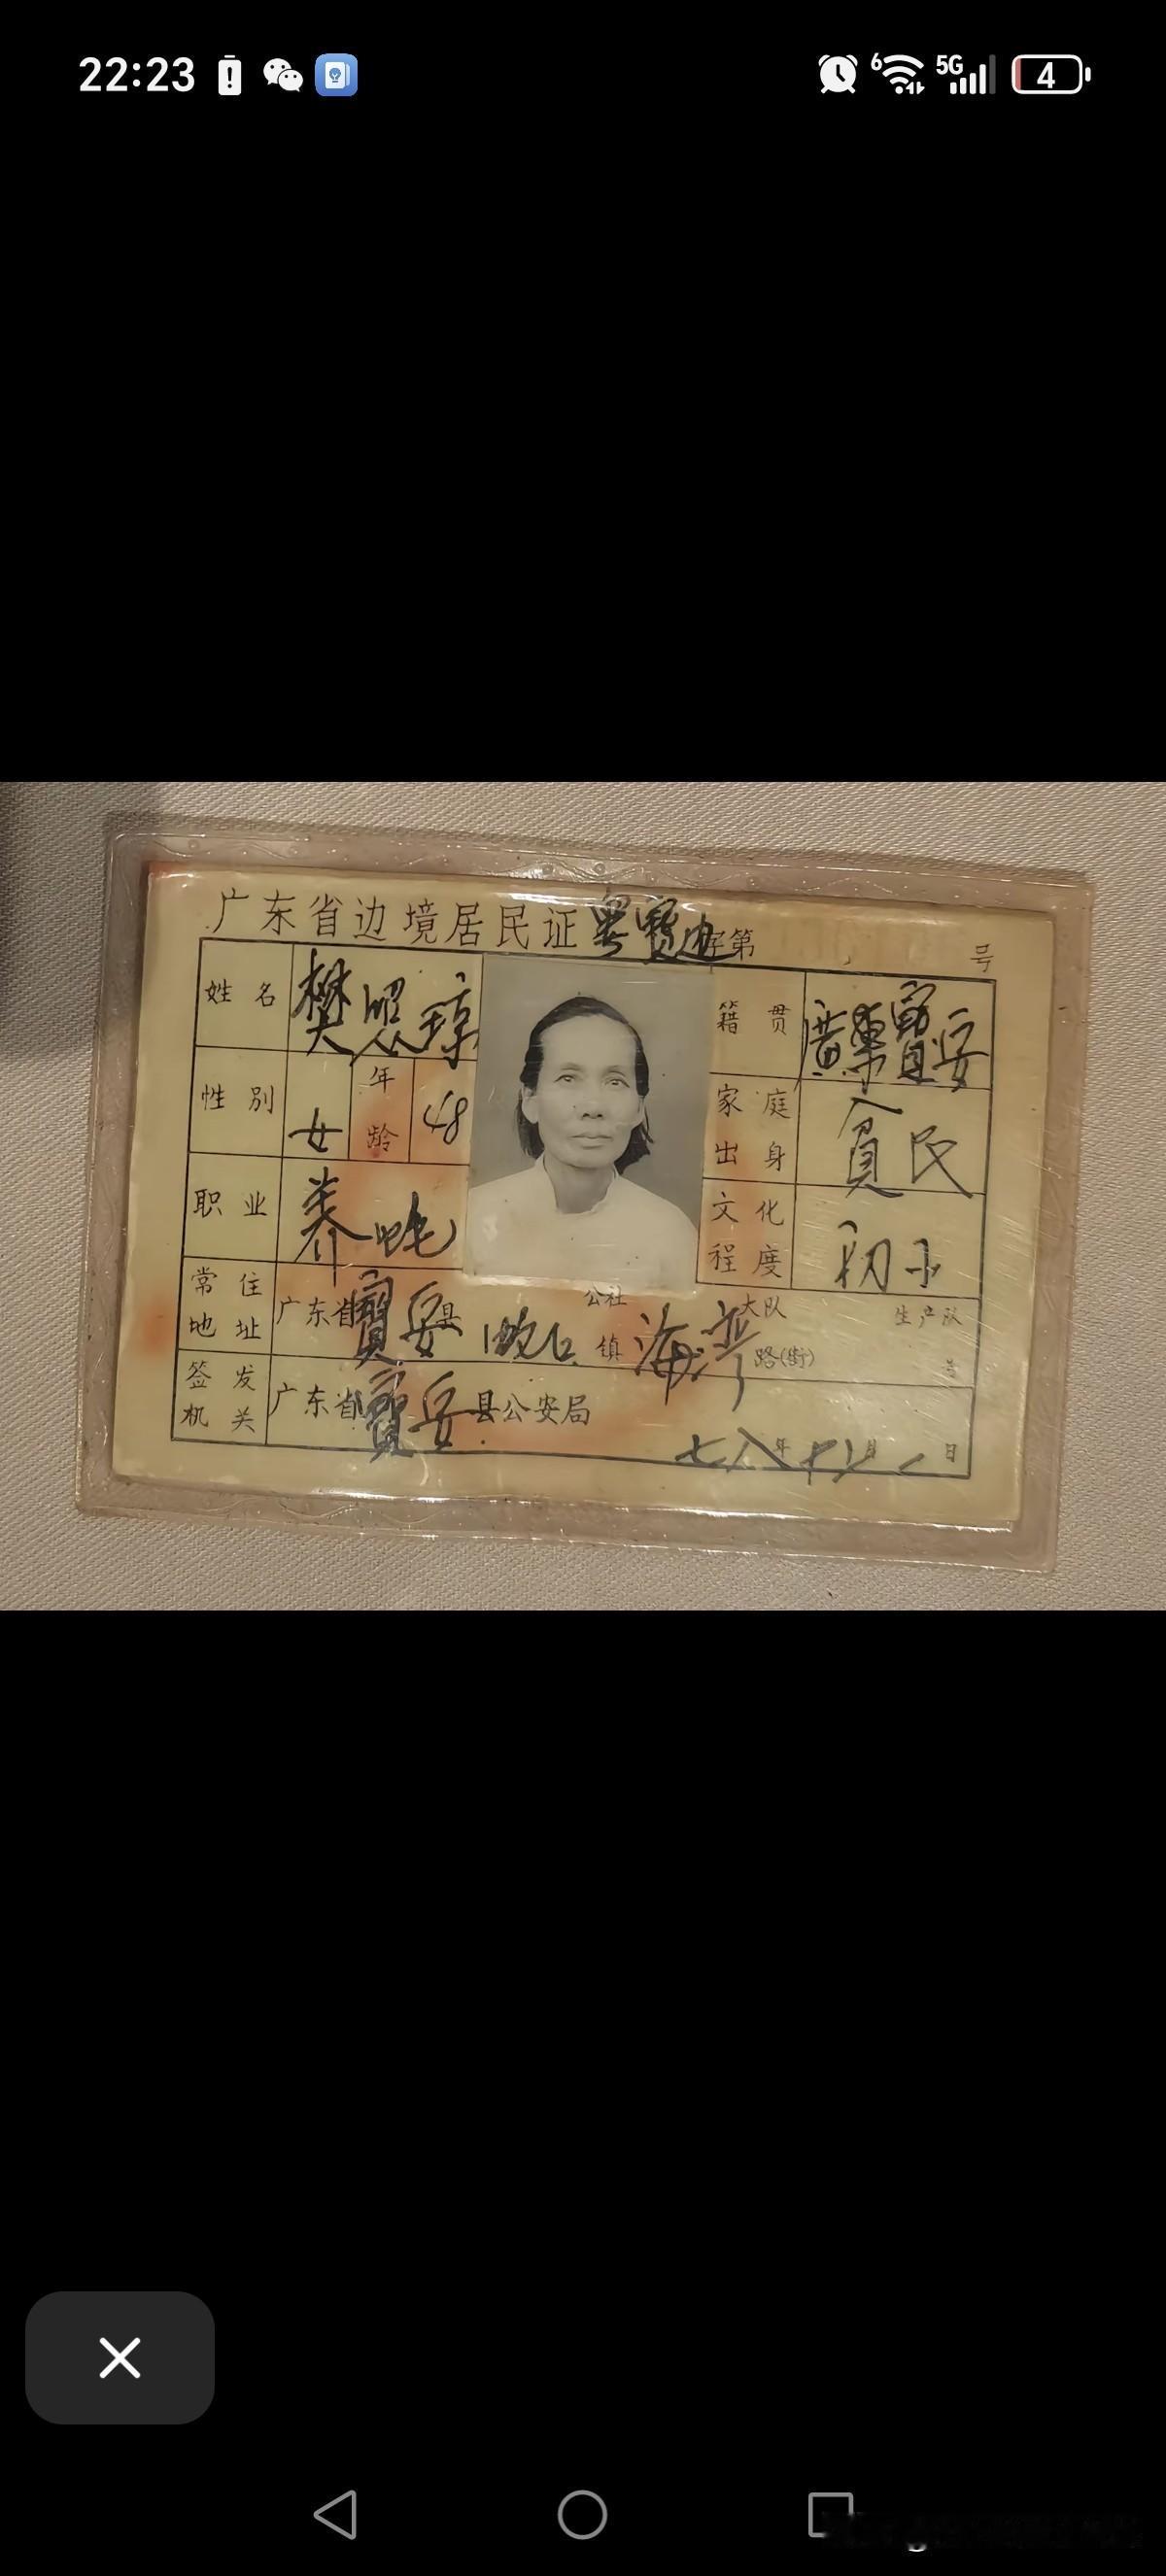 22:23
6 5G 4
广东省边境居民证 粤寳边字第 号
姓名 樊恩琼 籍贯 廣東寳安
性别 女 年龄 48 家庭出身 貧民
职业 养蚝 文化程度 初小
常住地址 广东省寳安县 公社 镇 海湾 大队 路(街) 生产队 号
签发机关 广东省寳安县公安局
七八年 月 日